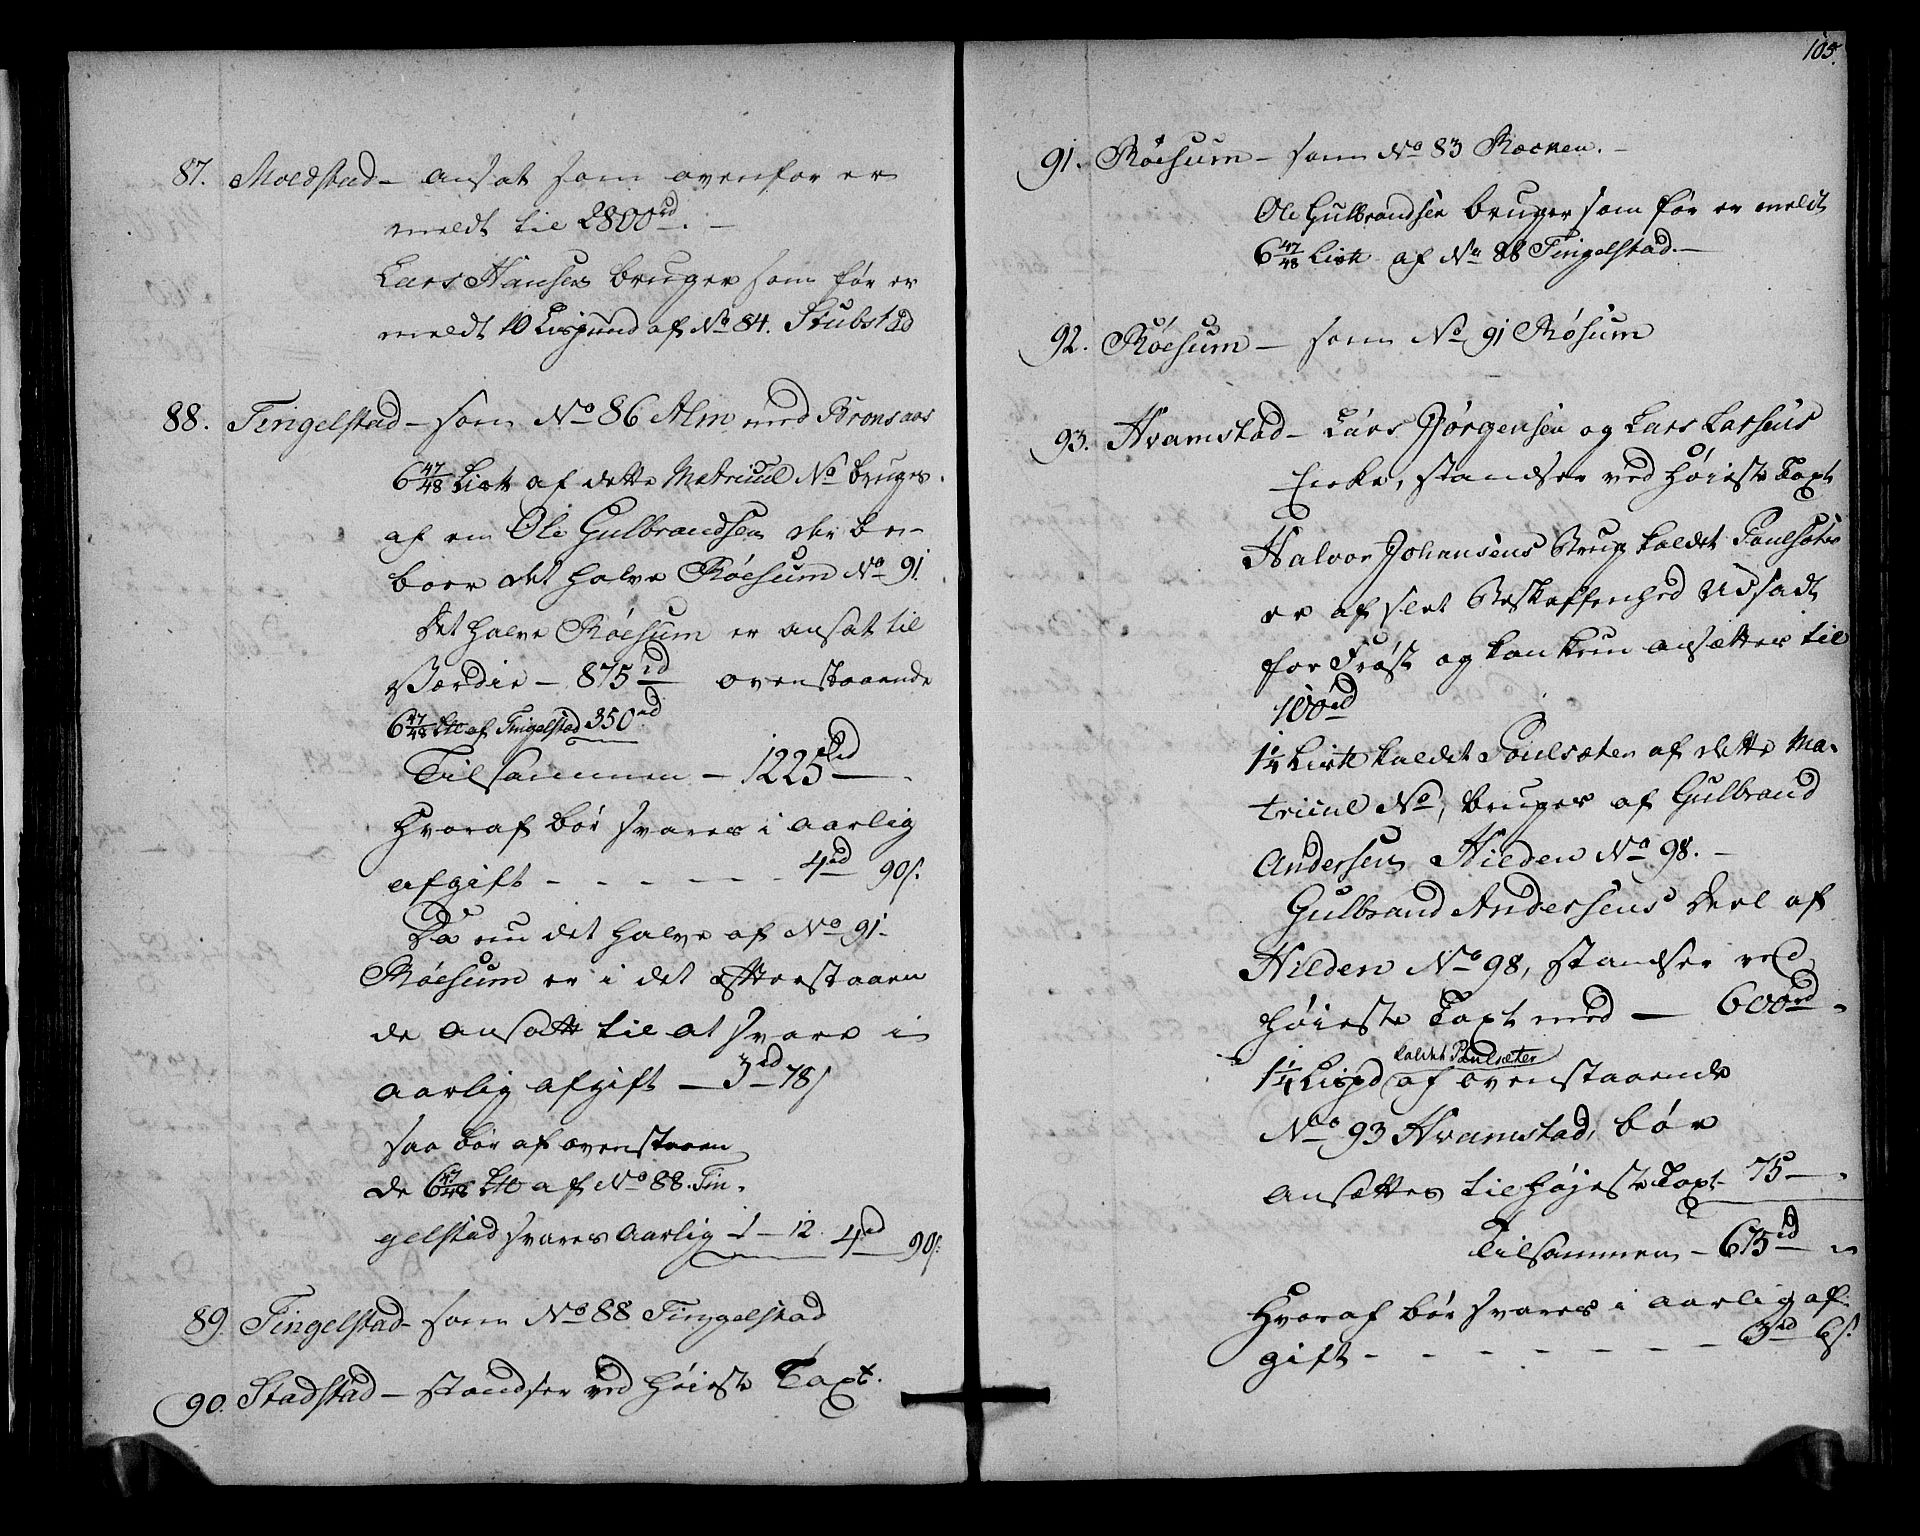 87. Moldstad – ansat som ovenfor er
meldt til 2800rd. –
Lars Hansen bruger som før er
meldt 10 Lispund af No 84. Stubstad
88. Tingelstad – som No 86 Alm med Bronsaas
6 47/48 Lis℔ af dette Matricul No bruges
af en Ole Gulbrandsen der be-
boer det halve Röesum No 91.
Det halve Röesum er ansat til
Værdie – 875rd ovenstaaende
6 47/48 L℔ af Tingelstad 350rd
Tilsammen – 1225rd
Hvoraf bør svares i aarlig
afgift – – – – – – 4rd 90s.
Da nu det halve af No 91
Röesum er i det efterstaaen
de ansatt til at svare i
aarlig afgift – 3rd 78s
saa bør af ovenstaaen
de 6 47/48 L℔ af No 88. Tin-
gelstad svares Aarlig 1 – 12. 4rd 90s.
89. Tingelstad – som No 88 Tingelstad
90. Stadstad – standser ved høieste Taxt.
105.
91. Röesum – som No 83 Roenen. –
Ole Gulbrandsen bruger som før er meldt
6 47/48 Lis℔ af No 88 Tingelstad. –
92. Röesum – som No 91 Røsum
93. Hvamstad – Lars Jörgensen og Lars Larsens
Enke, standser ved Høieste Taxt
Halvor Johansens Brug kaldet Paulsæter
er af slet Beskaffenhed udsadt
for Frøst og kan kun ansættes til
100rd
1 1/4 Lis℔ kaldet Poulsæter af dette Ma-
tricul No, bruges af Gulbrand
Andersen Hilden No 98. –
Gulbrand Andersens Deel af
Hilden No 98, standser ved
høieste Taxt med – 600rd "
kaldet Paulsæter
1 1/4 Lispd af ovenstaaende
No 93 Hvamstad, bør
ansættes til højeste Taxt 75 – "
Tilsammen – 675rd "
Hvoraf bør svares i aarlig af-
gift – – – – – – – 3rd 6s.